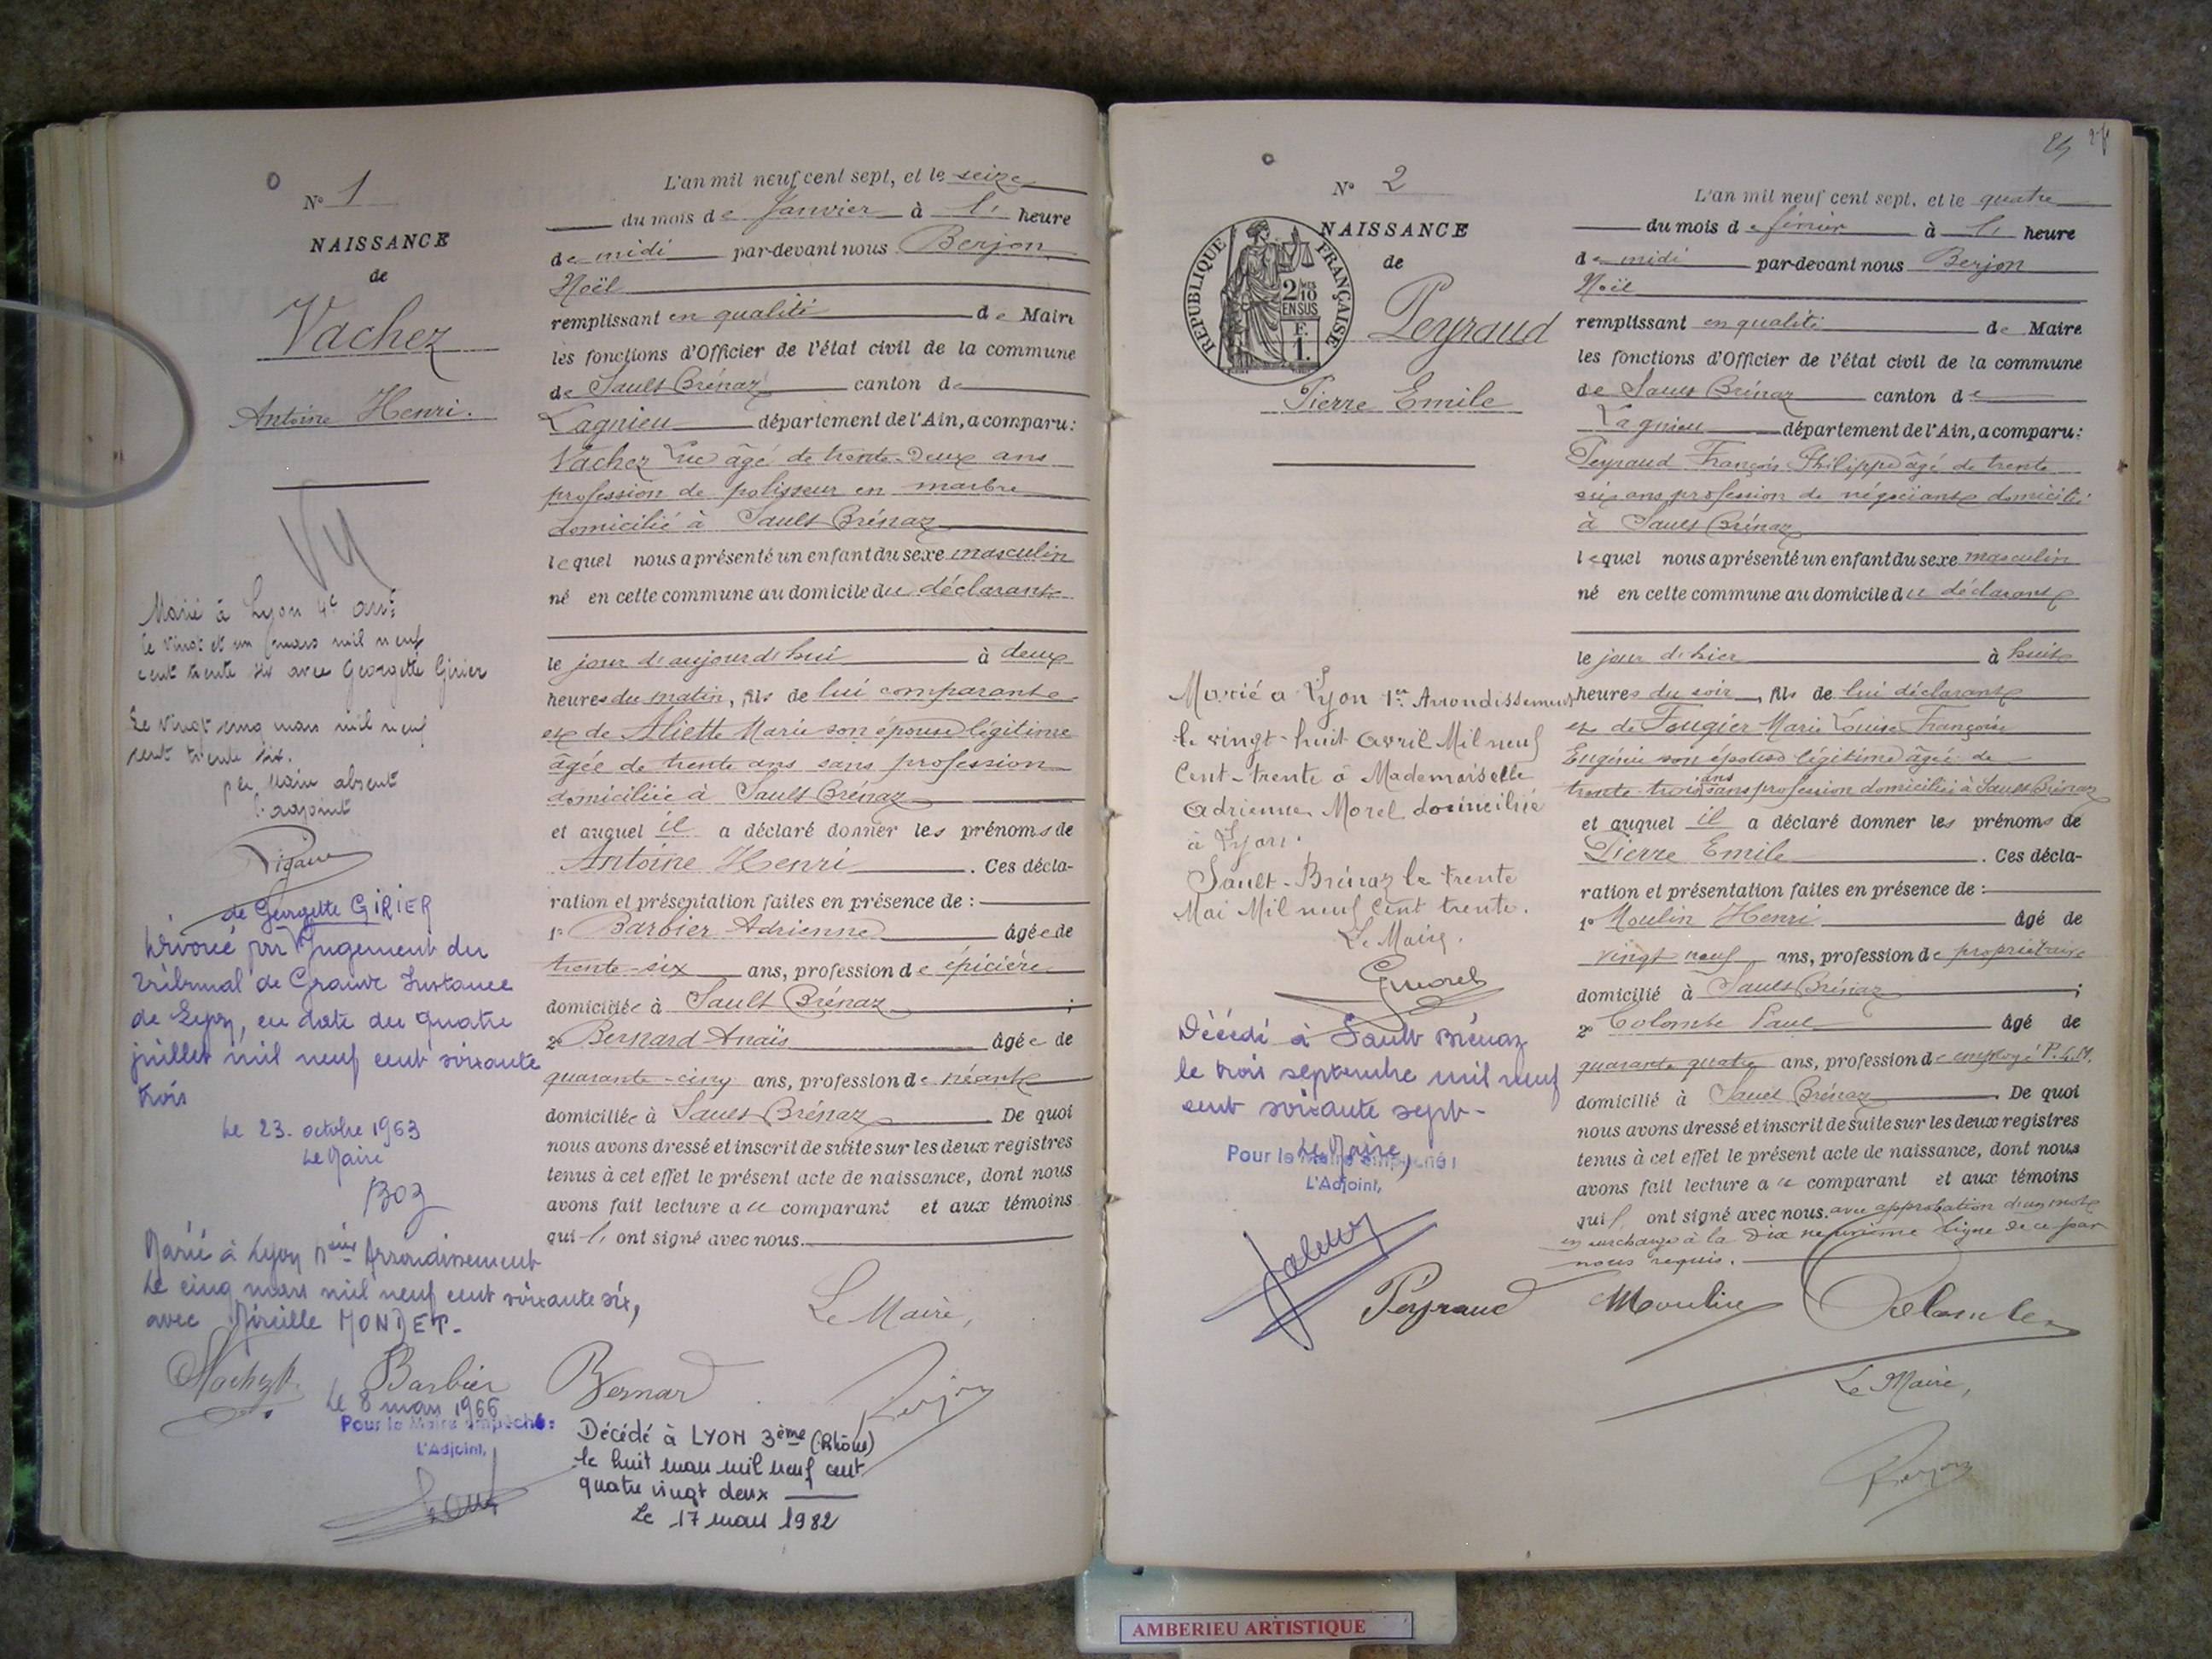 N° 1
NAISSANCE
de
Vachez
Antoine Henri.
Vu
Marié à Lyon 4e arrt
le vingt et un mars mil neuf
cent trente six avec Georgette Girier
Le vingt cinq mars mil neuf
cent trente six.
pr maire absent
l'adjoint
de Georgette GIRIER
Divorcé par Jugement du
Tribunal de Grande Instance
de Lyon, en date du quatre
juillet mil neuf cent soixante
trois
Le 23 octobre 1963
Le Maire
Boz
Marié à Lyon Arrondissement
Le cinq mars mil neuf cent soixante six,
avec Mireille MONDET-
L'an mil neuf cent sept, et le seize
du mois de Janvier à 1 heure
de midi par-devant nous Berjon
Noël
remplissant en qualité de Maire
les fonctions d'Officier de l'état civil de la commune
de Sault Brénaz canton de
Lagnieu département de l'Ain, a comparu:
Vachez Luc âgé de trente-deux ans
profession de polisseur en marbre
domicilié à Sault Brénaz
lequel nous a présenté un enfant du sexe masculin
né en cette commune au domicile du déclarant
le jour d'aujourd'hui à deux
heures du matin, fils de lui comparant
et de Aliette Marie son épouse légitime
âgée de trente ans sans profession
domiciliée à Sault Brénaz
et auquel il a déclaré donner les prénoms de
Antoine Henri. Ces décla-
ration et présentation faites en présence de :
1° Barbier Adrienne âgée de
trente-six ans, profession de épicière
domiciliée à Sault Brénaz ;
2° Bernard Anaïs âgée de
quarante-cinq ans, profession de néant
domiciliée à Sault Brénaz. De quoi
nous avons dressé et inscrit de suite sur les deux registres
tenus à cet effet le présent acte de naissance, dont nous
avons fait lecture au comparant et aux témoins
qui ont signé avec nous.
Le Maire,
Barbier
Bernard
Berjon
Le 8 mars 1966
Pour le Maire empêché:
L'Adjoint,
Décédé à LYON 3ème (Rhône)
le huit mars mil neuf cent
quatre vingt deux
Le 17 mars 1982
N° 2
NAISSANCE
de
Peyraud
Pierre Emile
REPUBLIQUE FRANÇAISE
2/10
EN SUS
F.
1.
Marié a Lyon 1er Arrondissement
le vingt-huit Avril Mil neuf
Cent-trente à Mademoiselle
Adrienne Morel domiciliée
à Lyon.
Sault-Brénaz le trente
Mai Mil neuf Cent trente.
Le Maire.
Décédé à Sault Brénaz
le trois septembre mil neuf
cent soixante sept-
Le Maire,
Pour le Maire empêché!
L'Adjoint,
L'an mil neuf cent sept, et le quatre
du mois de février à 1 heure
de midi par-devant nous Berjon
Noël
remplissant en qualité de Maire
les fonctions d'Officier de l'état civil de la commune
de Sault Brénaz canton de
Lagnieu département de l'Ain, a comparu:
Peyraud François Philippe âgé de trente
six ans profession de négociant domicilié
à Sault Brénaz
lequel nous a présenté un enfant du sexe masculin
né en cette commune au domicile du déclarant
le jour d'hier à huit
heures du soir, fils de lui déclarant
et de Fougier Marie Louise Françoise
Eugénie son épouse légitime âgée de
trente-trois ans sans profession domiciliée à Sault Brénaz
et auquel il a déclaré donner les prénoms de
Pierre Emile. Ces décla-
ration et présentation faites en présence de :
1° Moulin Henri âgé de
vingt neuf ans, profession de propriétaire
domicilié à Sault Brénaz ;
2° Colombe Paul âgé de
quarante quatre ans, profession de employé P.L.M.
domicilié à Sault Brénaz. De quoi
nous avons dressé et inscrit de suite sur les deux registres
tenus à cet effet le présent acte de naissance, dont nous
avons fait lecture au comparant et aux témoins
qui ont signé avec nous. avec approbation d'un mot
en surcharge à la dix neuvième ligne de ce par
nous requis.
Peyraud
Moulin
Le Maire,
Berjon
AMBERIEU ARTISTIQUE